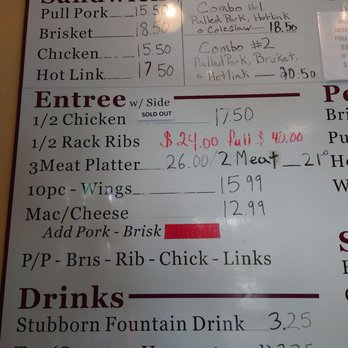 Sandwich
Pull Pork 15.50
Brisket 18.50
Chicken 15.50
Hot Link 17.50
Combo #1
Pulled Pork, Hotlink
Coleslaw 18.50
Combo #2
Pulled Pork, Brisket
+ Hotlink 20.50
Entree w/ Side
SOLD OUT
1/2 Chicken 17.50
1/2 Rack Ribs $24.00 Full $40.00
3Meat Platter 26.00/2 Meat 21
10pc - Wings 15.99
Mac/Cheese 12.99
Add Pork - Brisk
P/P - Bris - Rib - Chick - Links
Drinks
Stubborn Fountain Drink 3.25